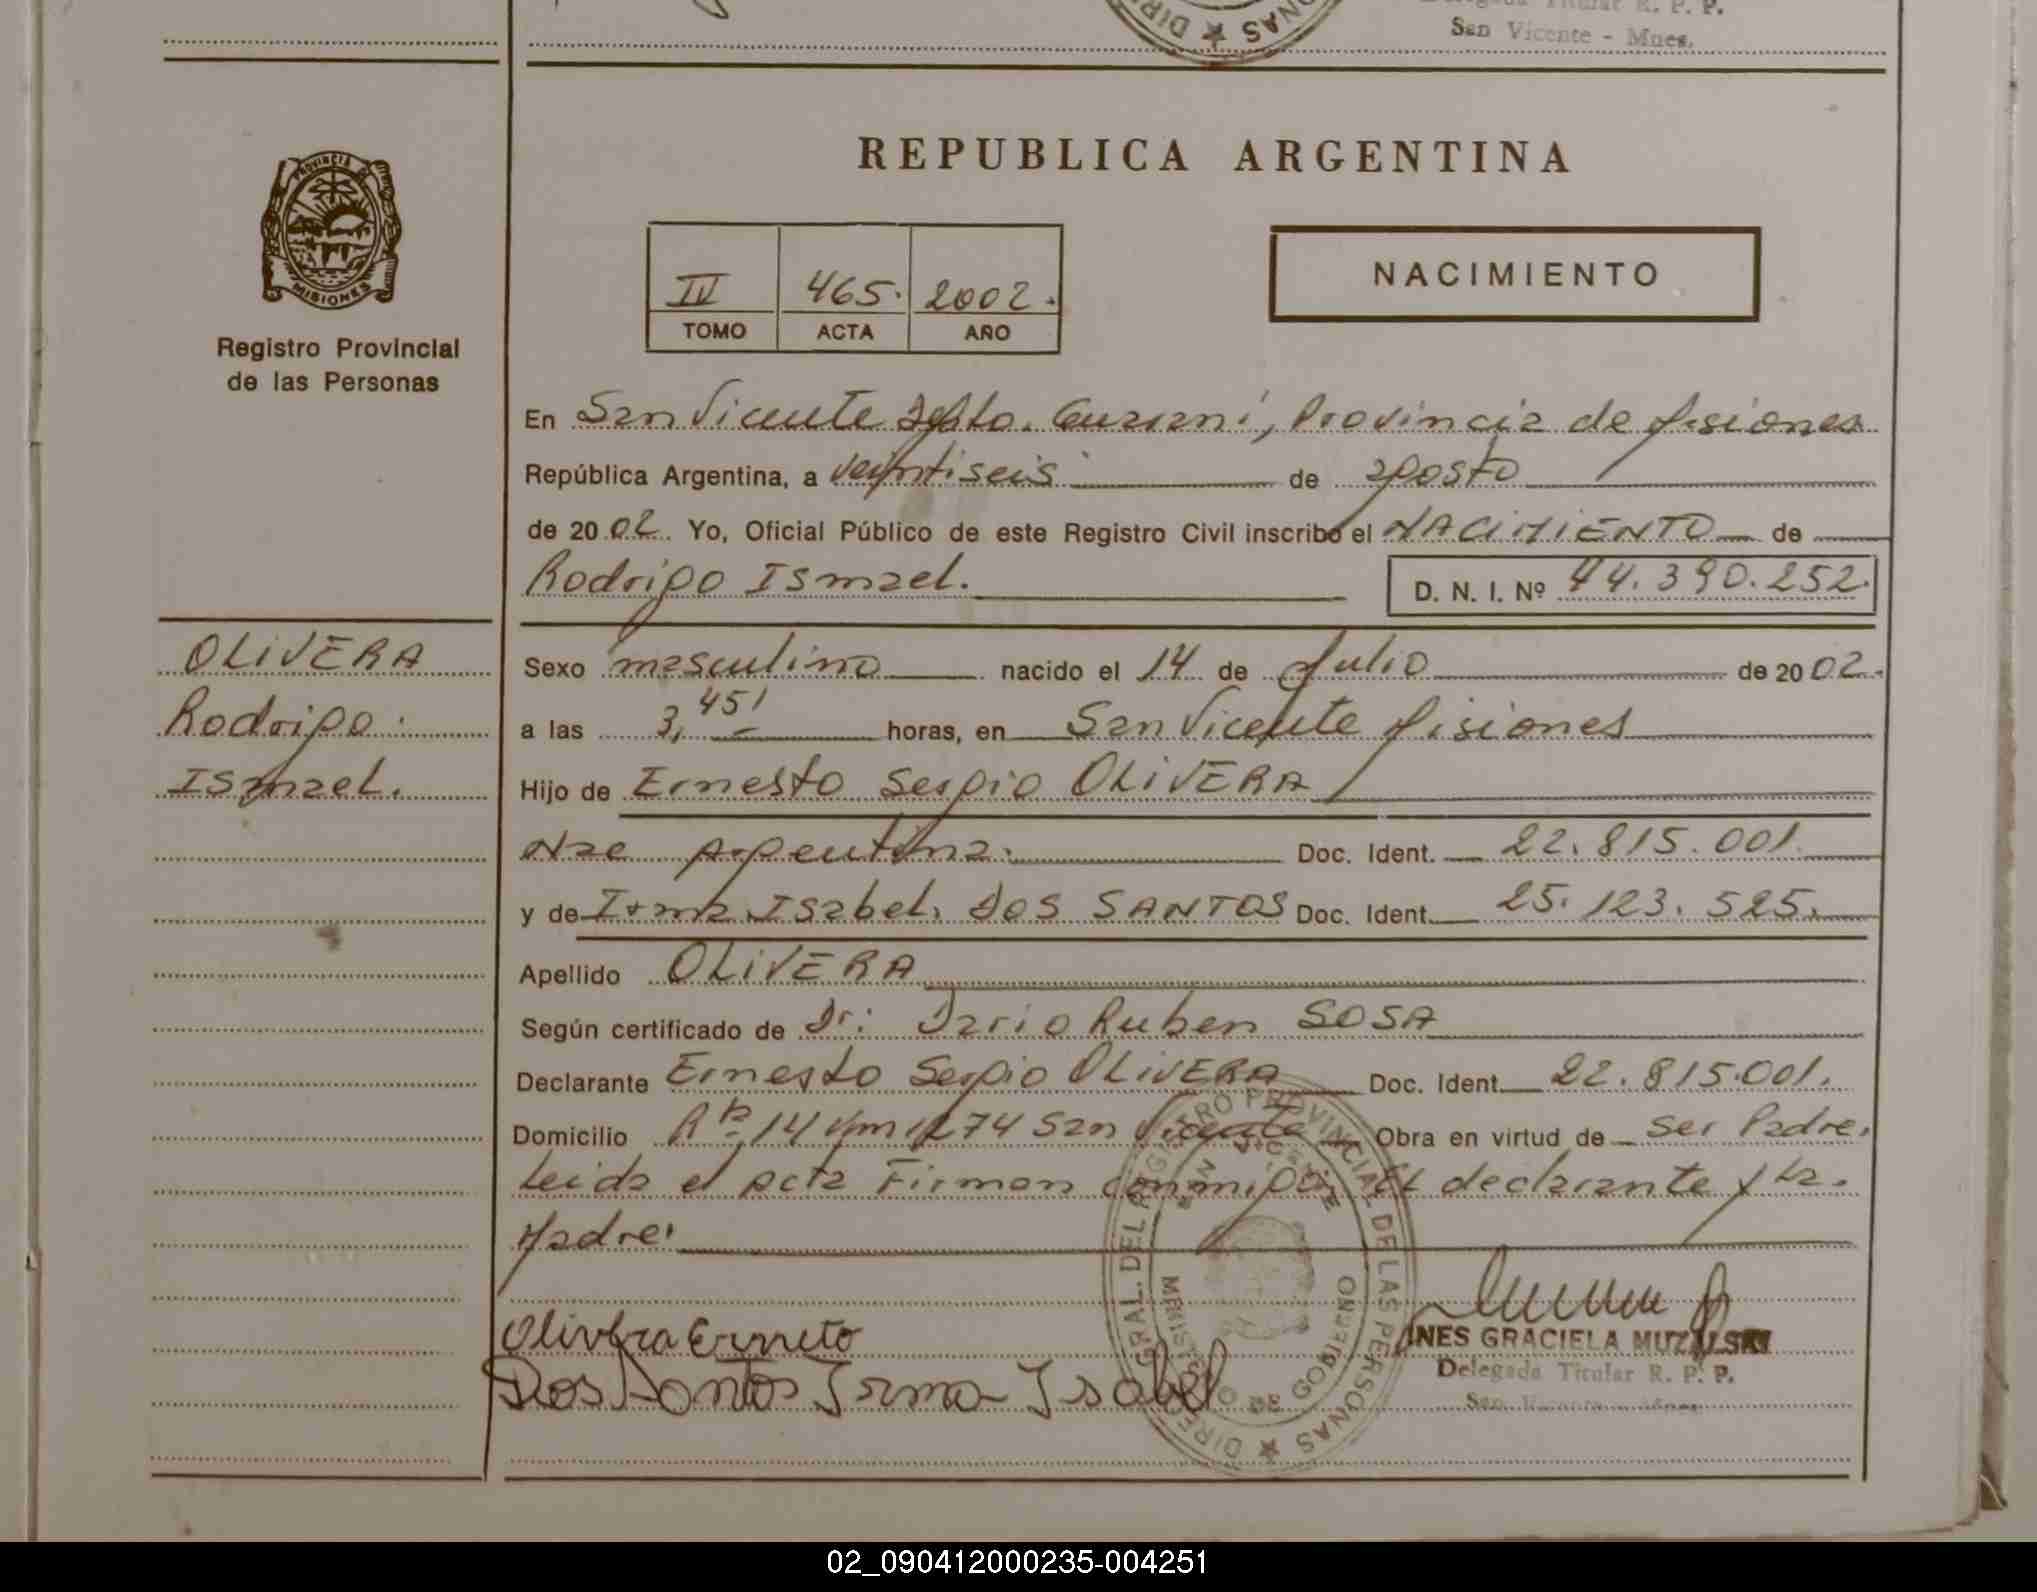 Delegada Titular R. P. P.
San Vicente - Mnes.
DIR ★ SONAS
REPUBLICA ARGENTINA
PROVINCIA DE
MISIONES
Registro Provincial
de las Personas
IV 465. 2002.
TOMO ACTA AÑO
NACIMIENTO
En San Vicente Dpto. Guaraní, Provincia de Misiones
República Argentina, a veintiseis de agosto
de 2002. Yo, Oficial Público de este Registro Civil inscribo el NACIMIENTO de
Rodrigo Ismael. D. N. I. Nº 44.390.252.
OLIVERA
Rodrigo
Ismael.
Sexo masculino nacido el 14 de Julio de 2002.
a las 3,45' horas, en San Vicente Misiones
Hijo de Ernesto Sergio OLIVERA
Nac Argentina. Doc. Ident. 22.815.001.
y de Irma Isabel. DOS SANTOS Doc. Ident. 25.123.525.
Apellido OLIVERA
Según certificado de Dr: Dario Ruben SOSA
Declarante Ernesto Sergio OLIVERA Doc. Ident. 22.815.001.
Domicilio Rta 14 Km 1274 San Vicente Obra en virtud de ser Padre.
Leida el acta Firman conmigo, El declarante y La.
Madre.
DIREC GRAL. DEL REGISTRO PROVINCIAL DE LAS PERSONAS ★
SAN VICENTE
MINISTERIO DE GOBIERNO
INES GRACIELA MUZALSKI
Delegada Titular R. P. P.
San Vicente - Mnes.
Olivera Ernesto
Dos Santos Irma Isabel
02_090412000235-004251